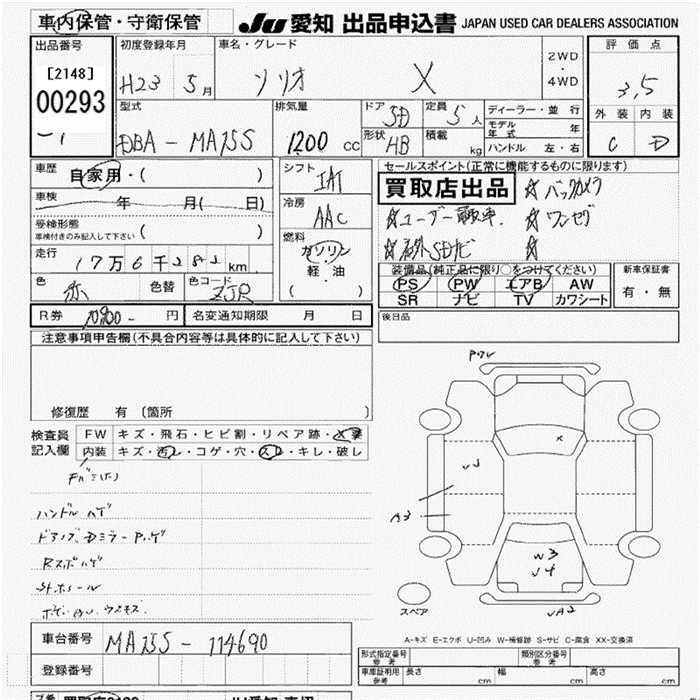 車内保管・守衛保管 JU 愛知 出品申込書 JAPAN USED CAR DEALERS ASSOCIATION
出品番号 初度登録年月 車名・グレード 2WD ・ 4WD 評価点
[2148] H23 5月 ソリオ X 3,5
00293
型式 排気量 ドア 5D 定員 5人 ディーラー・並 行 外装 内装
DBA-MA15S 1200 cc 形状 HB 積載 kg モデル年式 年 C D
ハンドル 左・右
車歴 自家用・( ) シフト IAT セールスポイント(正常に機能するものに限ります)
車検 年 月( 日) 冷房 AAC 買取店出品 ☆バックカメラ
受検形態 ☆ユーザー買取車. ☆ワンセグ
車検付きのみ記入して下さい ( ) 燃料 ☆社外SDナビ ☆
走行 17万6千282km ガソリン
軽・油
( )
色 赤 色替 色コード ZJR
装備品(純正品に限り○をつけてください) 新車保証書
PS PW エアB AW 有・無
SR ナビ TV カワシート
R券 円 名変通知期限 月 日 後日品
注意事項申告欄(不具合内容等は具体的に記入して下さい)
修復歴 有 (箇所 )
検査員 FW キズ・飛石・ヒビ割・リペア跡・X要
記入欄 内装 キズ・汚レ・コゲ・穴・スレ・キレ・破レ
ハンドルハゲ
A3
W3
スペア
A-キズ E-エクボ U-凹み W-補修跡 S-サビ C-腐食 XX-交換済
車台番号 MA15S-114690
登録番号
形式指定番号 参考 類別区分番号 参考
車庫証明用 参考 長さ cm 幅 cm 高さ cm